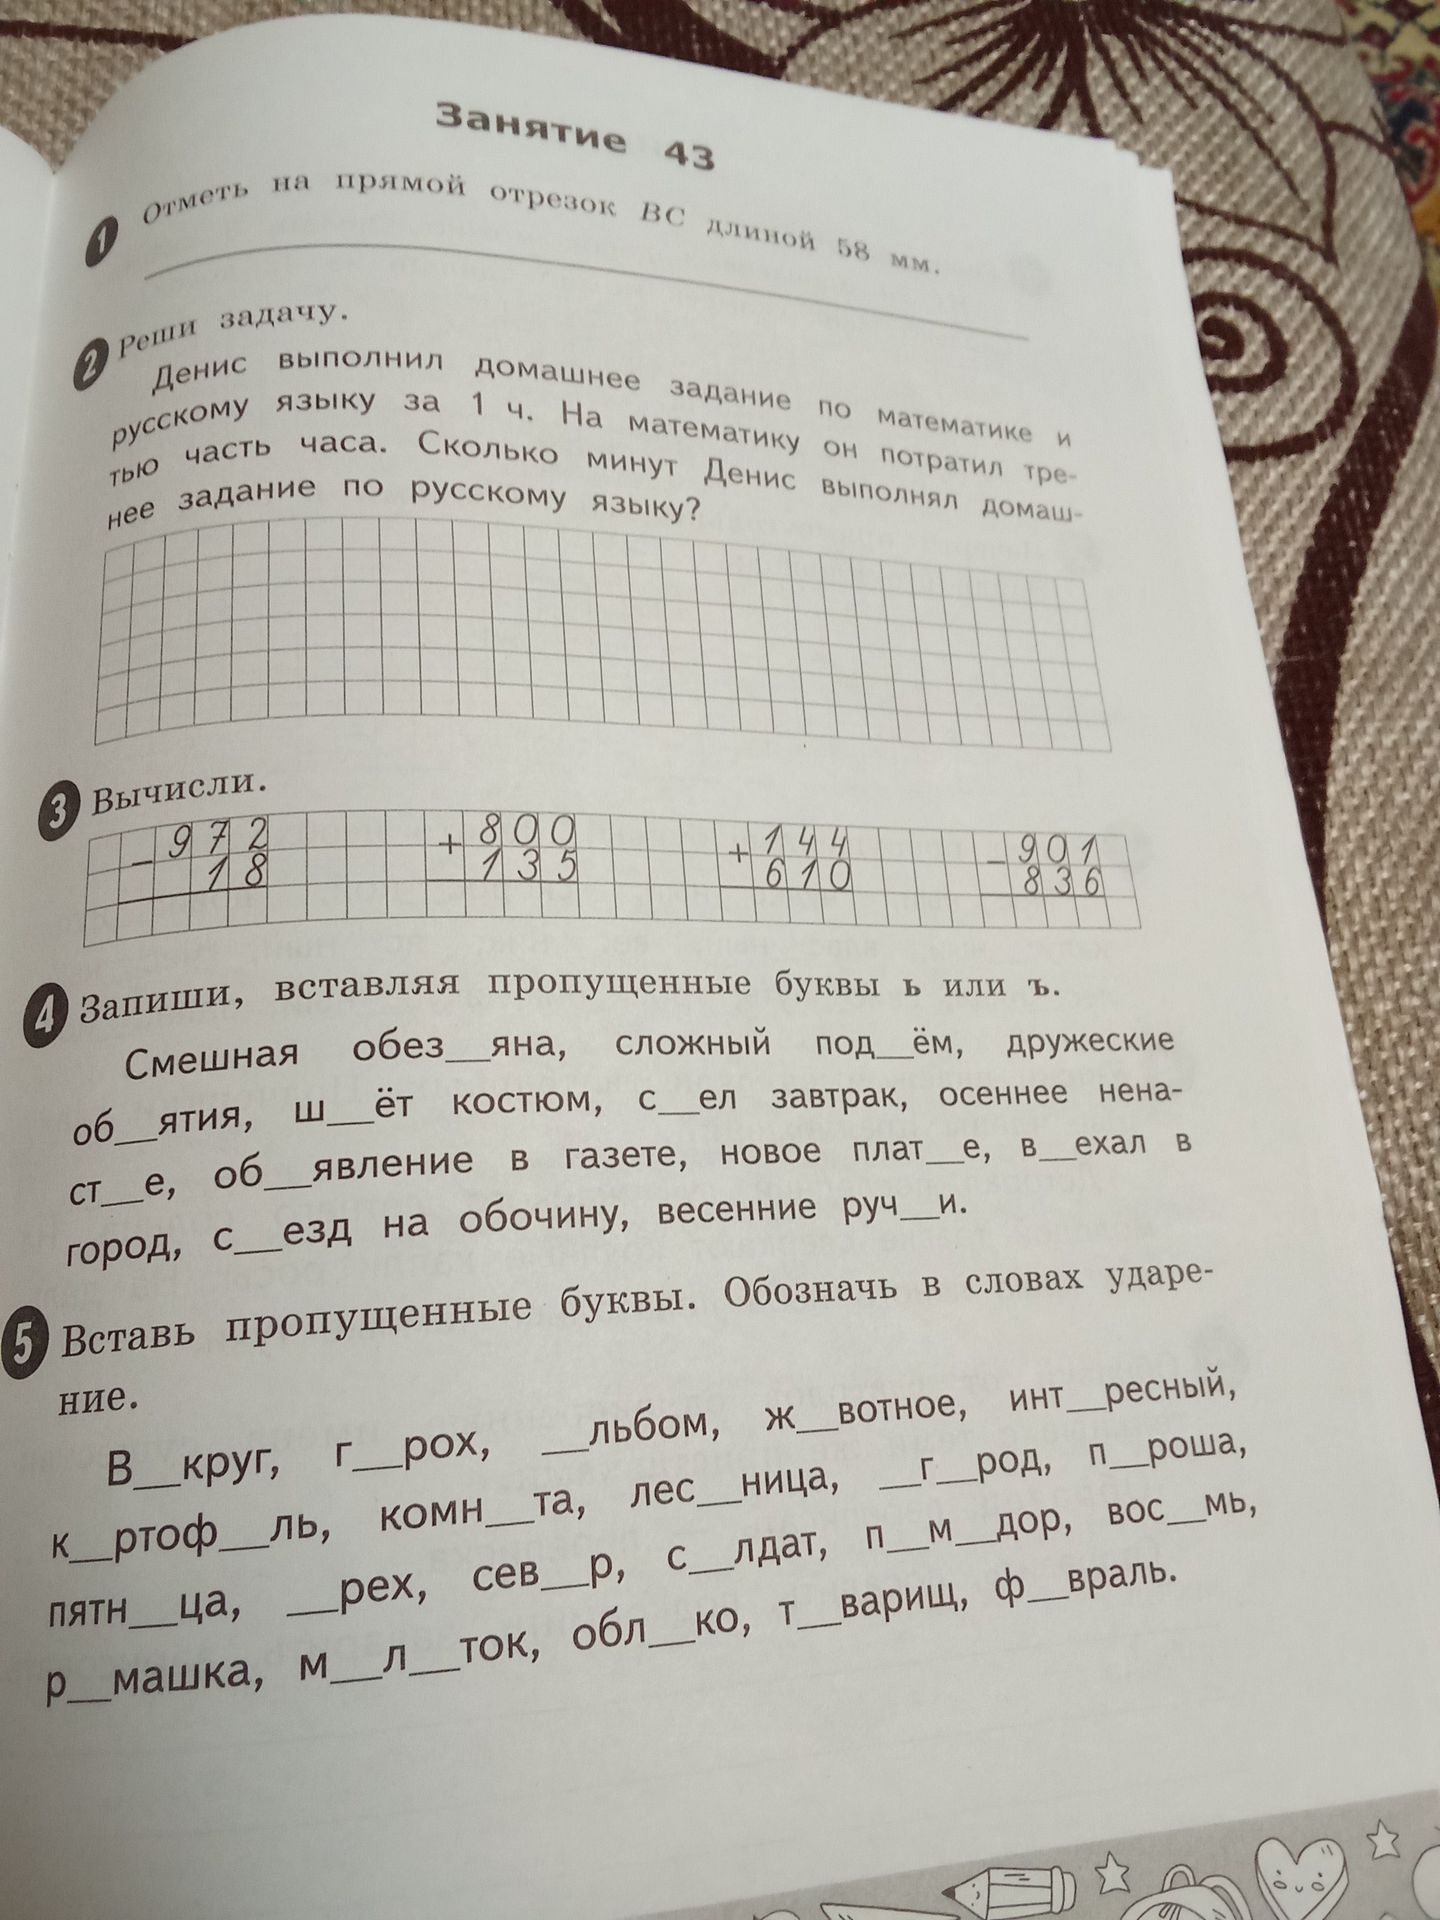 Занятие 43
1 Отметь на прямой отрезок BC длиной 58 мм.
2 Реши задачу.
Денис выполнил домашнее задание по математике и
русскому языку за 1 ч. На математику он потратил тре-
тью часть часа. Сколько минут Денис выполнял домаш-
нее задание по русскому языку?
3 Вычисли.
− 972 + 800 + 144 − 901
18 135 610 836
4 Запиши, вставляя пропущенные буквы ь или ъ.
Смешная обез__яна, сложный под__ём, дружеские
об__ятия, ш__ёт костюм, с__ел завтрак, осеннее нена-
ст__е, об__явление в газете, новое плат__е, в__ехал в
город, с__езд на обочину, весенние руч__и.
5 Вставь пропущенные буквы. Обозначь в словах ударе-
ние.
В__круг, г__рох, __льбом, ж__вотное, инт__ресный,
к__ртоф__ль, комн__та, лес__ница, __г__род, п__роша,
пятн__ца, __рех, сев__р, с__лдат, п__м__дор, вос__мь,
р__машка, м__л__ток, обл__ко, т__варищ, ф__враль.